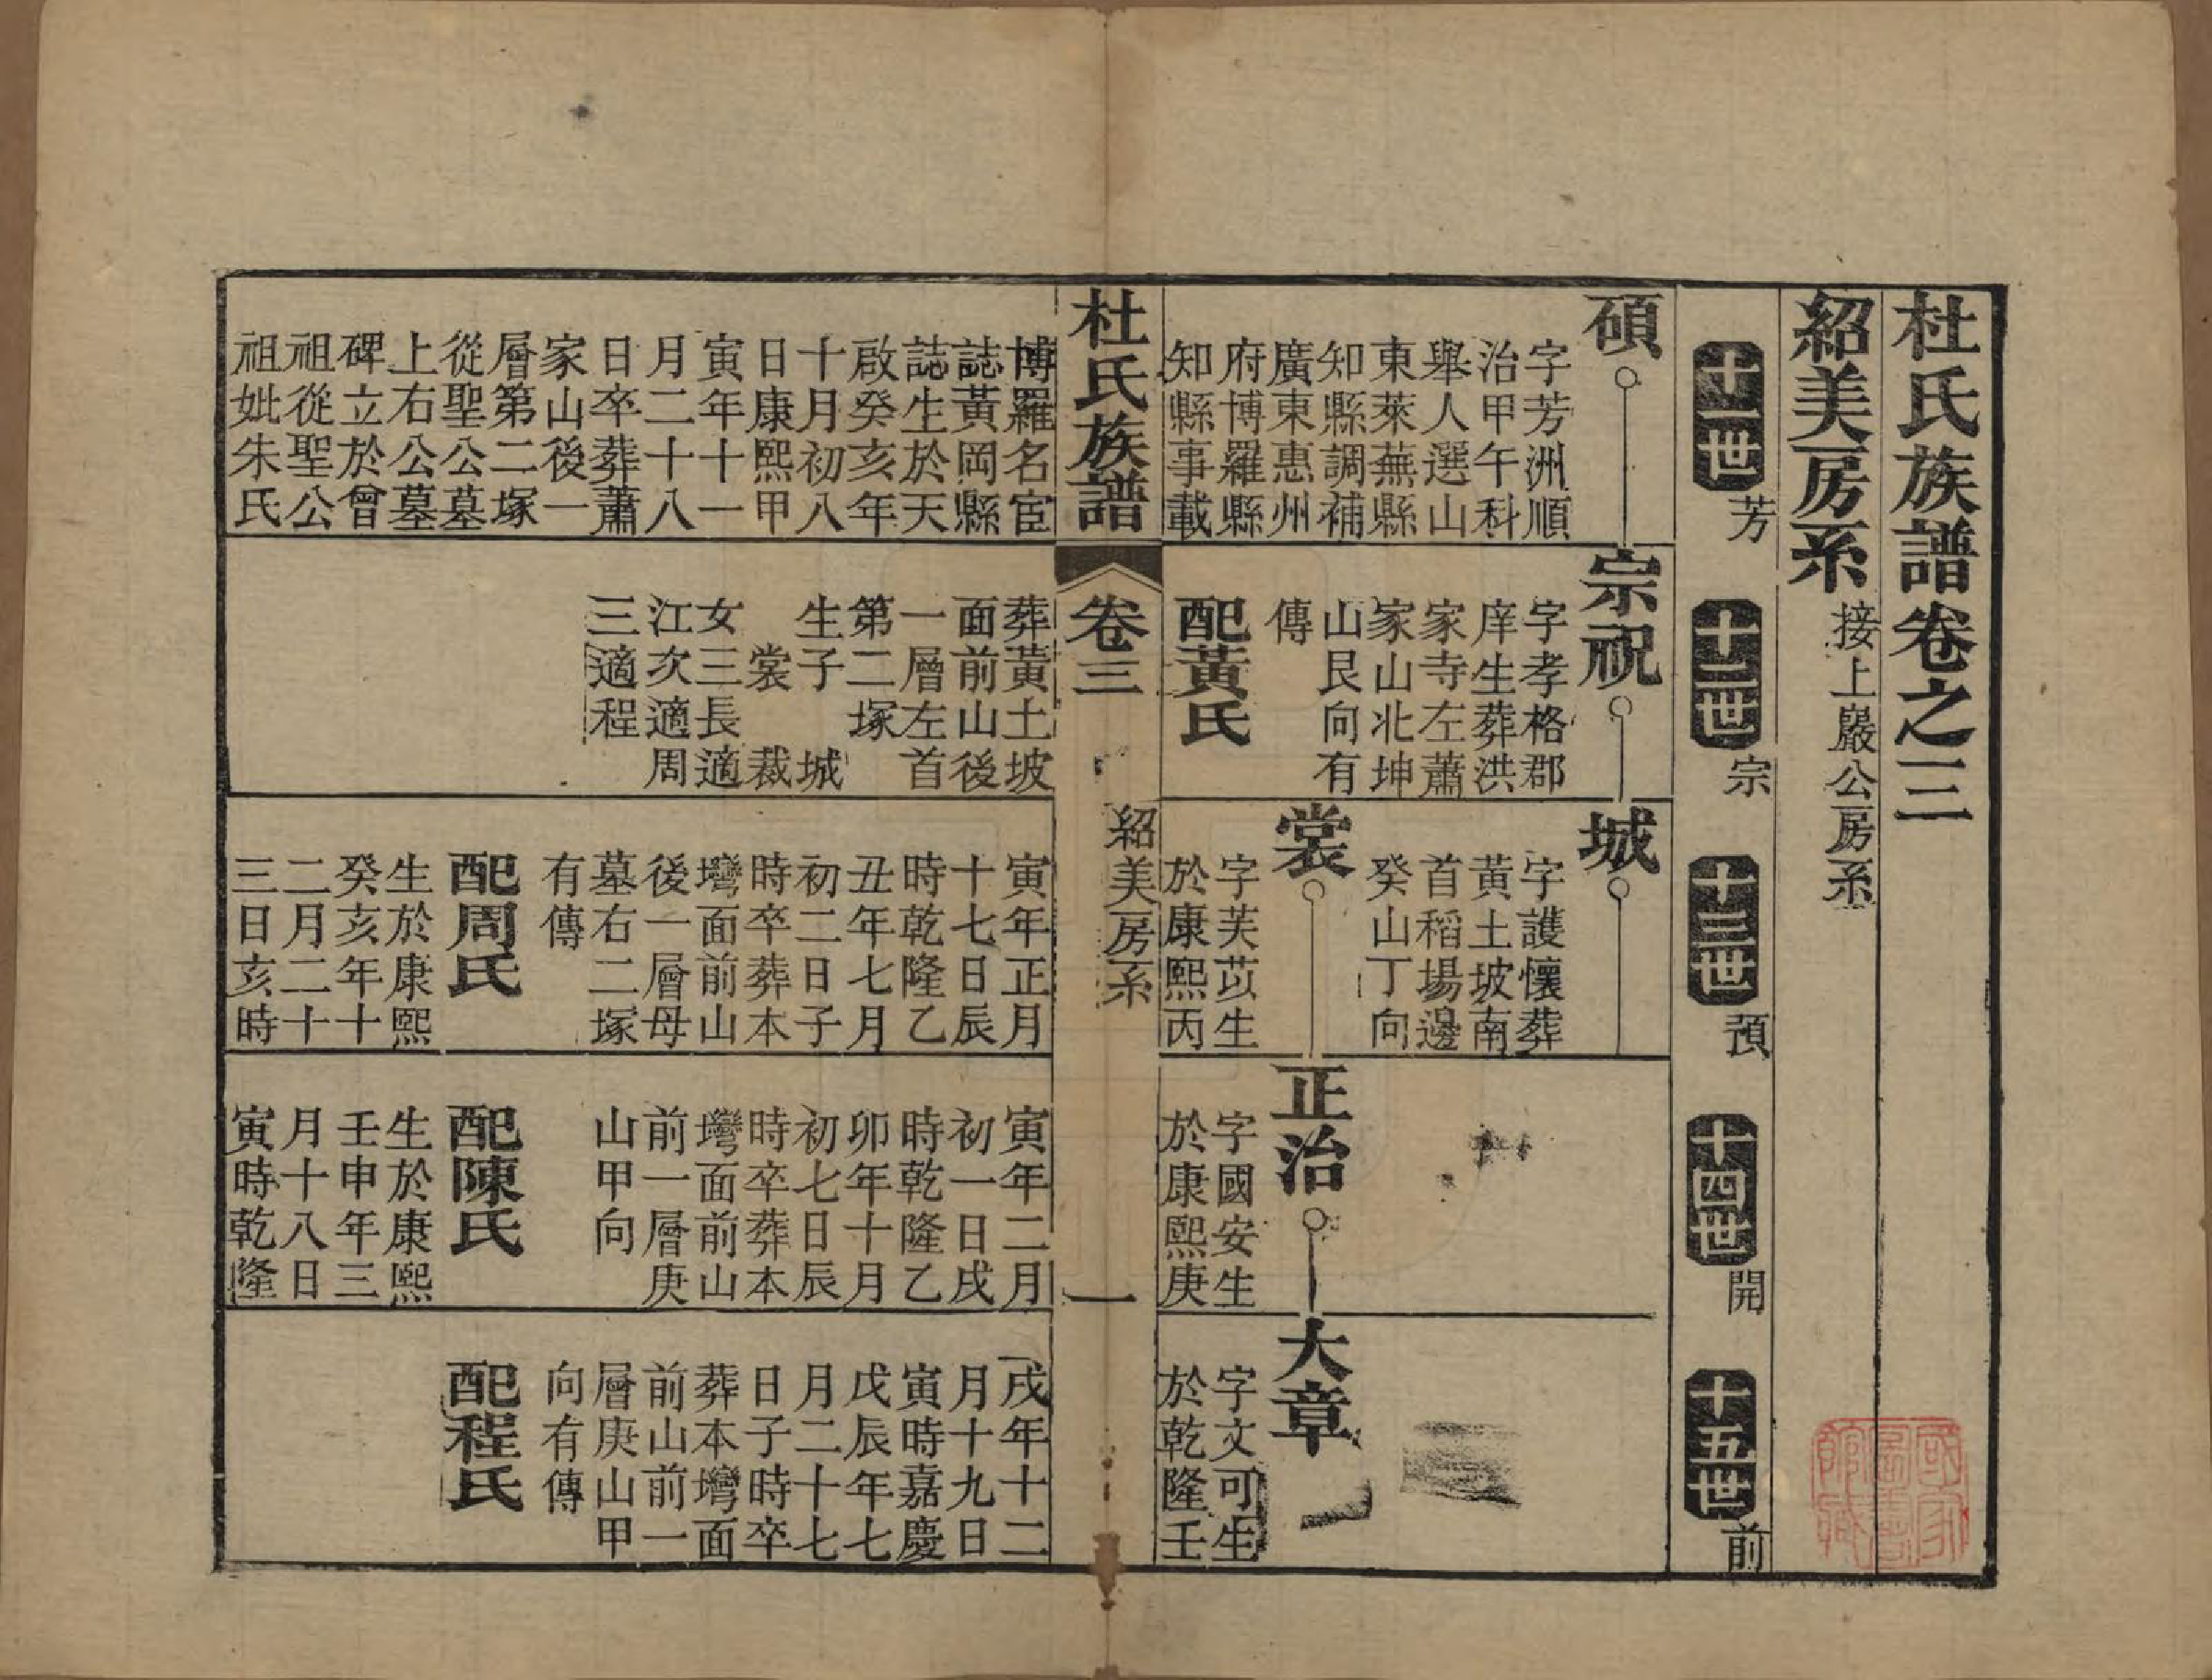 杜氏族譜卷之三
紹美房系 接上嚴公房系
十一世 芳
十二世 宗
十三世 預
十四世 開
十五世 前
碩
字芳洲順
治甲午科
舉人選山
東萊蕪縣
知縣調補
廣東惠州
府博羅縣
知縣事載
博羅名宦
誌黃岡縣
誌生於天
啟癸亥年
十月初八
日康熙甲
寅年十一
月二十八
日卒葬蕭
家山後一
層第二塚
從聖公墓
上右公墓
碑立於曾
祖從聖公
祖妣朱氏
宗祝
字孝格郡
庠生葬洪
家寺左蕭
家山北坤
山艮向有
傳
配黃氏
葬黃土坡
面前山後
一層左首
第二塚
生子 城
裳 裁
女三長適
江次適周
三適程
城
字護懷葬
黃土坡南
首稻場邊
癸山丁向
裳
字芙苡生
於康熙丙
寅年正月
十七日辰
時乾隆乙
丑年七月
初二日子
時卒葬本
灣面前山
後一層母
墓右二塚
有傳
配周氏
生於康熙
癸亥年十
二月二十
三日亥時
正治
字國安生
於康熙庚
寅年二月
初一日戌
時乾隆乙
卯年十月
初七日辰
時卒葬本
灣面前山
前一層庚
山甲向
配陳氏
生於康熙
壬申年三
月十八日
寅時乾隆
大章
字文可生
於乾隆壬
戌年十二
月十九日
寅時嘉慶
戊辰年七
月二十七
日子時卒
葬本灣面
前山前一
層庚山甲
向有傳
配程氏
杜氏族譜
卷三
紹美房系
一
國家圖書館藏